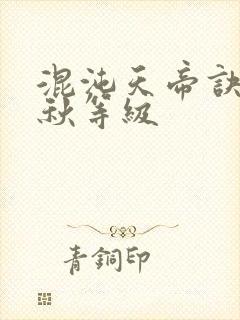 混沌天帝訣
秋等級
青銅印